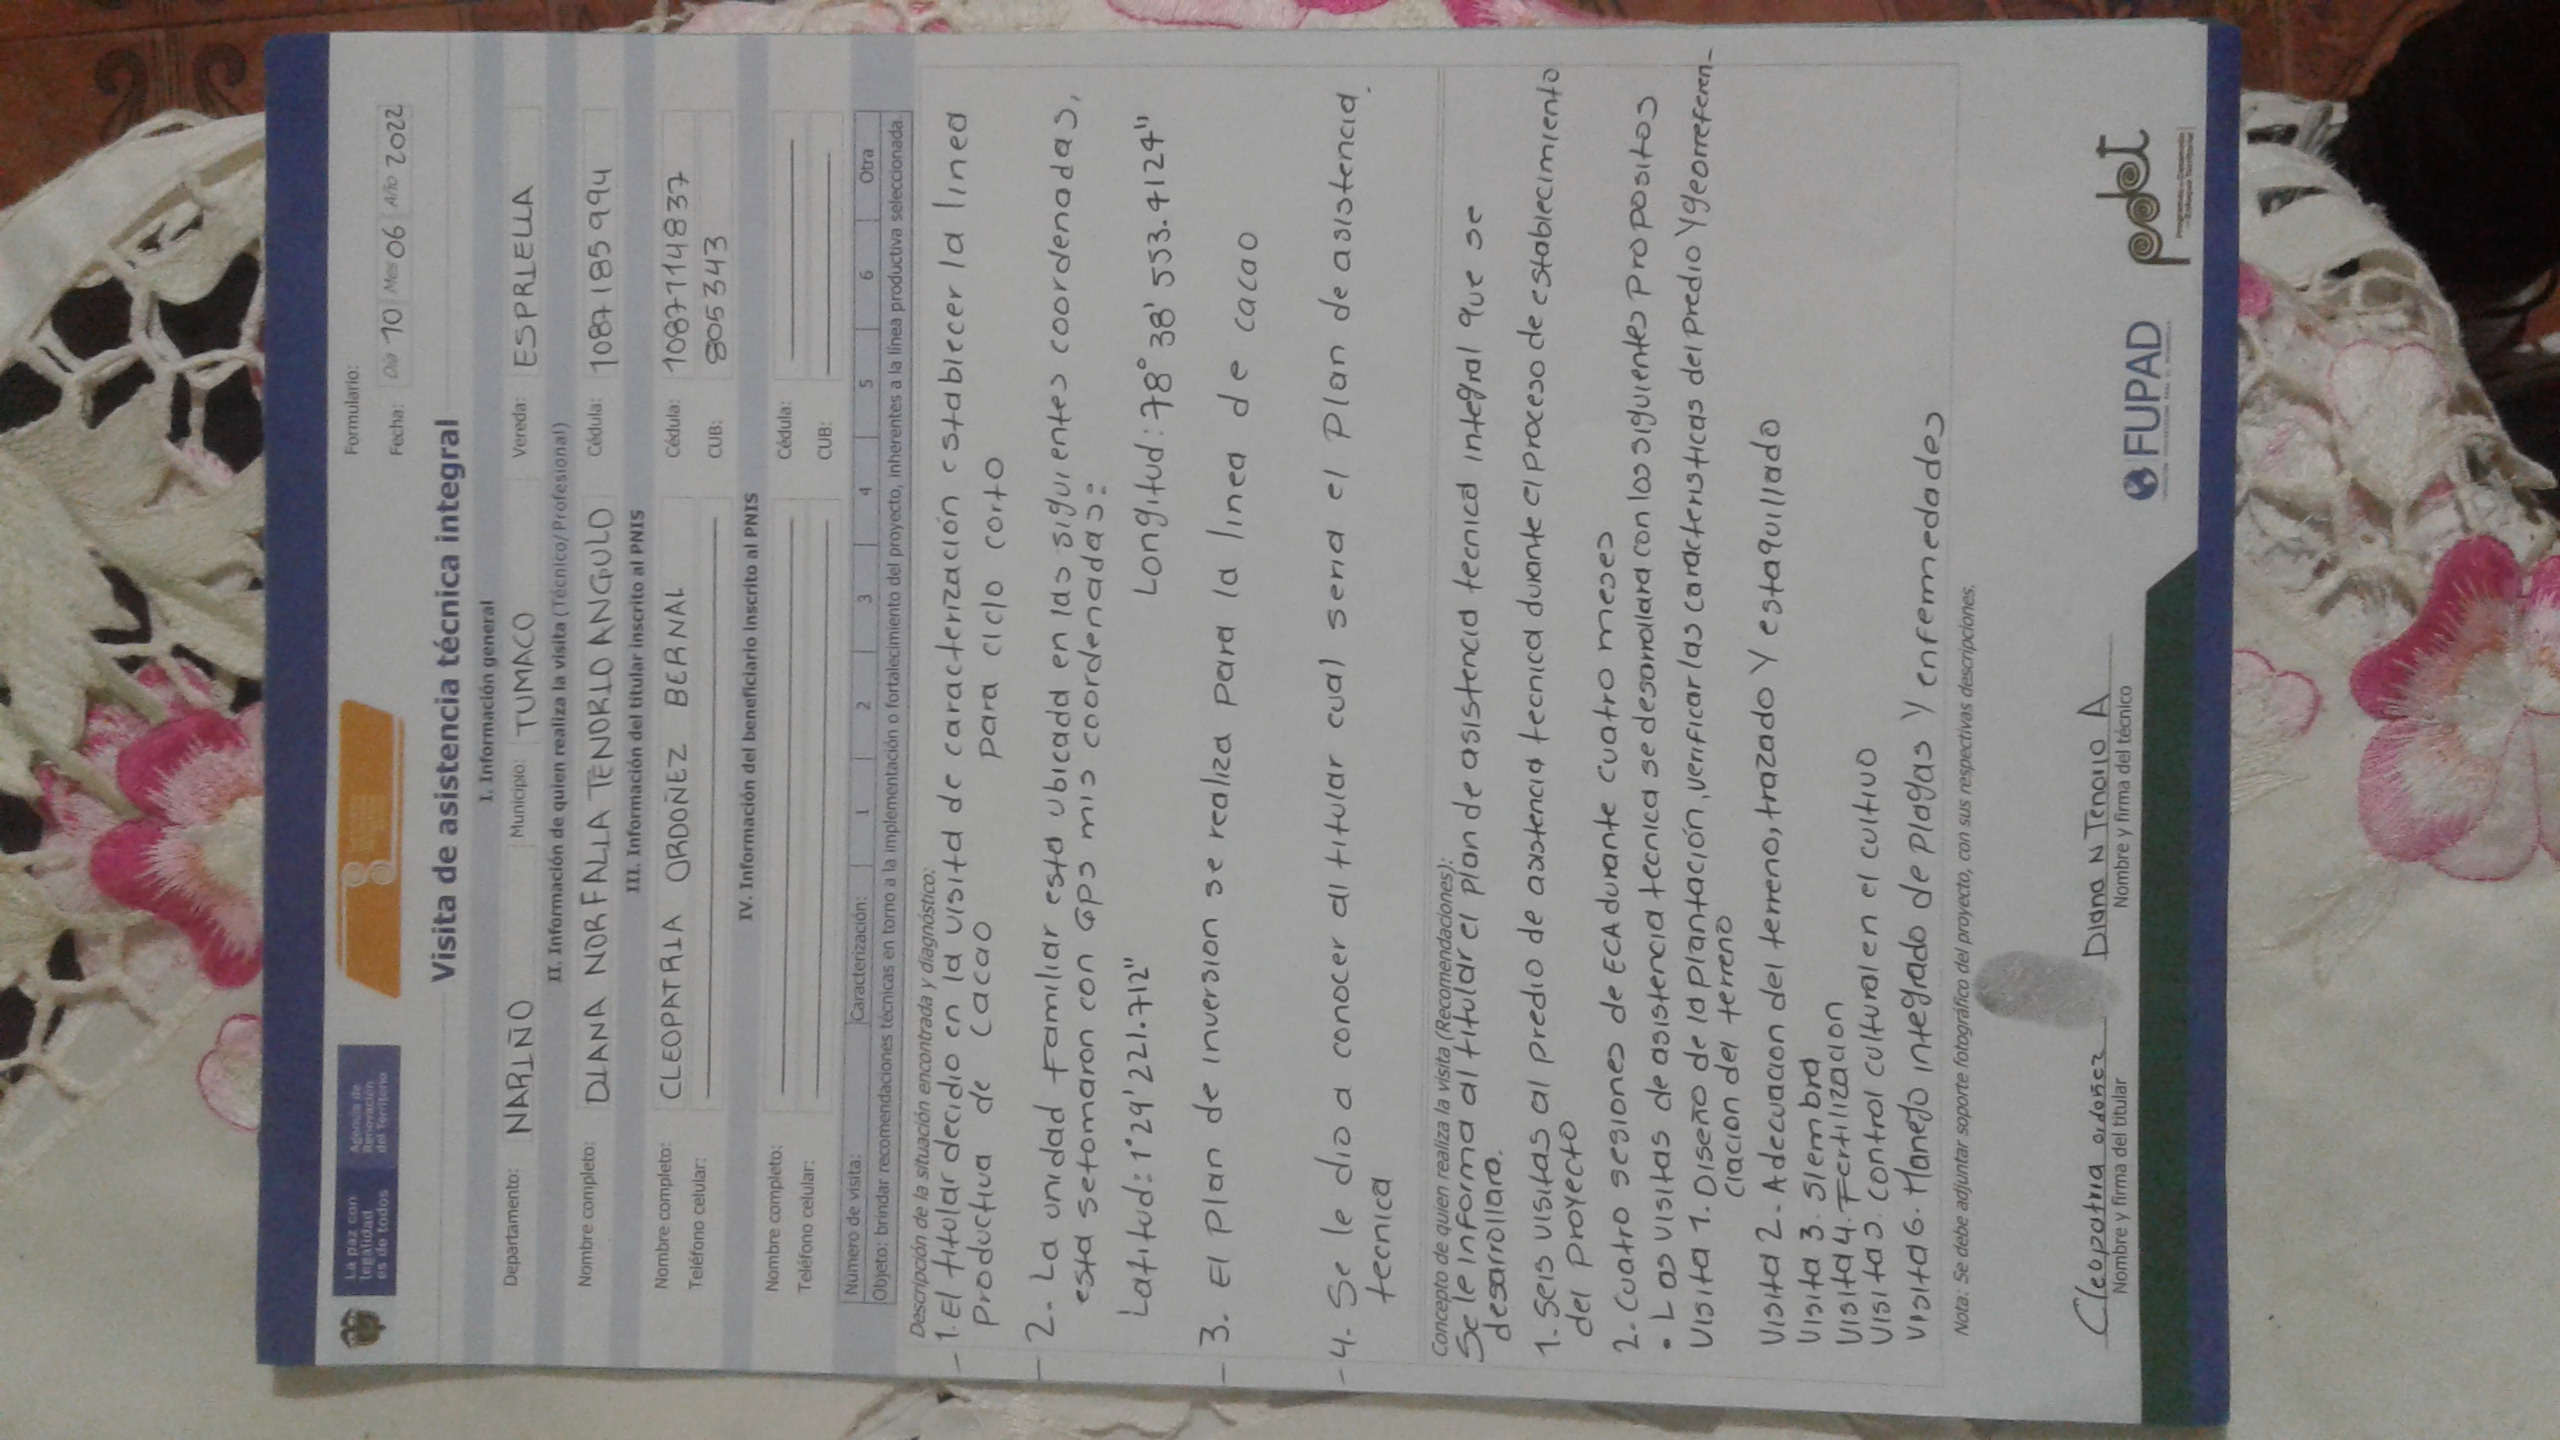 La paz con
legalidad
es de todos
Agencia de
Renovación
del Territorio
Formulario:
Fecha: Día 10 Mes 06 Año 2022
Visita de asistencia técnica integral
I. Información general
Departamento: NARIÑO Municipio: TUMACO Vereda: ESPRIELLA
II. Información de quien realiza la visita (Técnico/Profesional)
Nombre completo: DIANA NORFALIA TENORIO ANGULO Cédula: 1087185994
III. Información del titular inscrito al PNIS
Nombre completo: CLEOPATRIA ORDOÑEZ BERNAL Cédula: 1087114837
Teléfono celular: CUB: 805343
IV. Información del beneficiario inscrito al PNIS
Nombre completo: Cédula:
Teléfono celular: CUB:
Número de visita: Caracterización: 1 2 3 4 5 6 Otra
Objeto: brindar recomendaciones técnicas en torno a la implementación o fortalecimiento del proyecto, inherentes a la línea productiva seleccionada.
Descripción de la situación encontrada y diagnóstico:
- 1. El titular decidio en la visita de caracterización establecer la linea
Productiva de cacao para ciclo corto
- 2. La unidad Familiar esta ubicada en las siguientes coordenadas,
esta setomaron con GPS mis coordenadas:
Latitud: 1°29'221.712" Longitud: 78° 38' 553.4124"
- 3. El Plan de inversion se realiza para la linea de cacao
- 4. Se le dio a conocer al titular cual seria el Plan de asistencia.
tecnica
Concepto de quien realiza la visita (Recomendaciones):
Se le informa al titular el plan de asistencia tecnica integral que se
desarrollara.
1. seis visitas al predio de asistencia tecnica durante el proceso de establecimiento
del proyecto
2. cuatro sesiones de ECA durante cuatro meses
• Las visitas de asistencia tecnica se desarrollara con los siguientes propositos
Visita 1. Diseño de la plantación, verificar las caracteristicas del predio Y georreferen-
ciacion del terreno
Visita 2. Adecuacion del terreno, trazado Y estaquillado
Visita 3. Siembra
Visita 4. Fertilizacion
Visita 5. Control cultural en el cultivo
Visita 6. Manejo integrado de plagas Y enfermedades
Nota: Se debe adjuntar soporte fotográfico del proyecto, con sus respectivas descripciones.
Cleopatria ordoñez Diana N Tenorio A
Nombre y firma del titular Nombre y firma del técnico
FUPAD
pdet